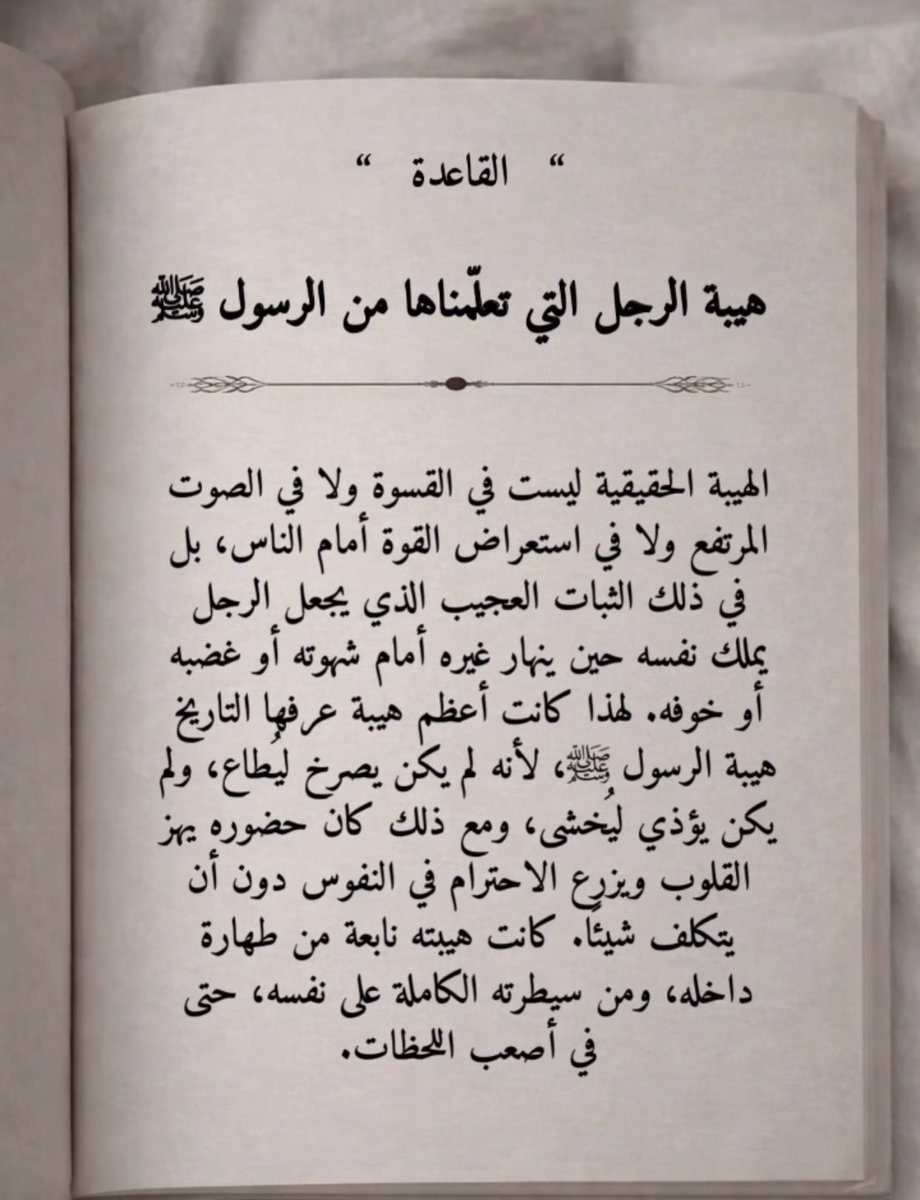 “ القاعدة “
هيبة الرجل التي تعلّمناها من الرسول ﷺ
الهيبة الحقيقية ليست في القسوة ولا في الصوت
المرتفع ولا في استعراض القوة أمام الناس، بل
في ذلك الثبات العجيب الذي يجعل الرجل
يملك نفسه حين ينهار غيره أمام شهوته أو غضبه
أو خوفه. لهذا كانت أعظم هيبة عرفها التاريخ
هيبة الرسول ﷺ، لأنه لم يكن يصرخ ليُطاع، ولم
يكن يؤذي ليُخشى، ومع ذلك كان حضوره يهز
القلوب ويزرع الاحترام في النفوس دون أن
يتكلف شيئًا. كانت هيبته نابعة من طهارة
داخله، ومن سيطرته الكاملة على نفسه، حتى
في أصعب اللحظات.